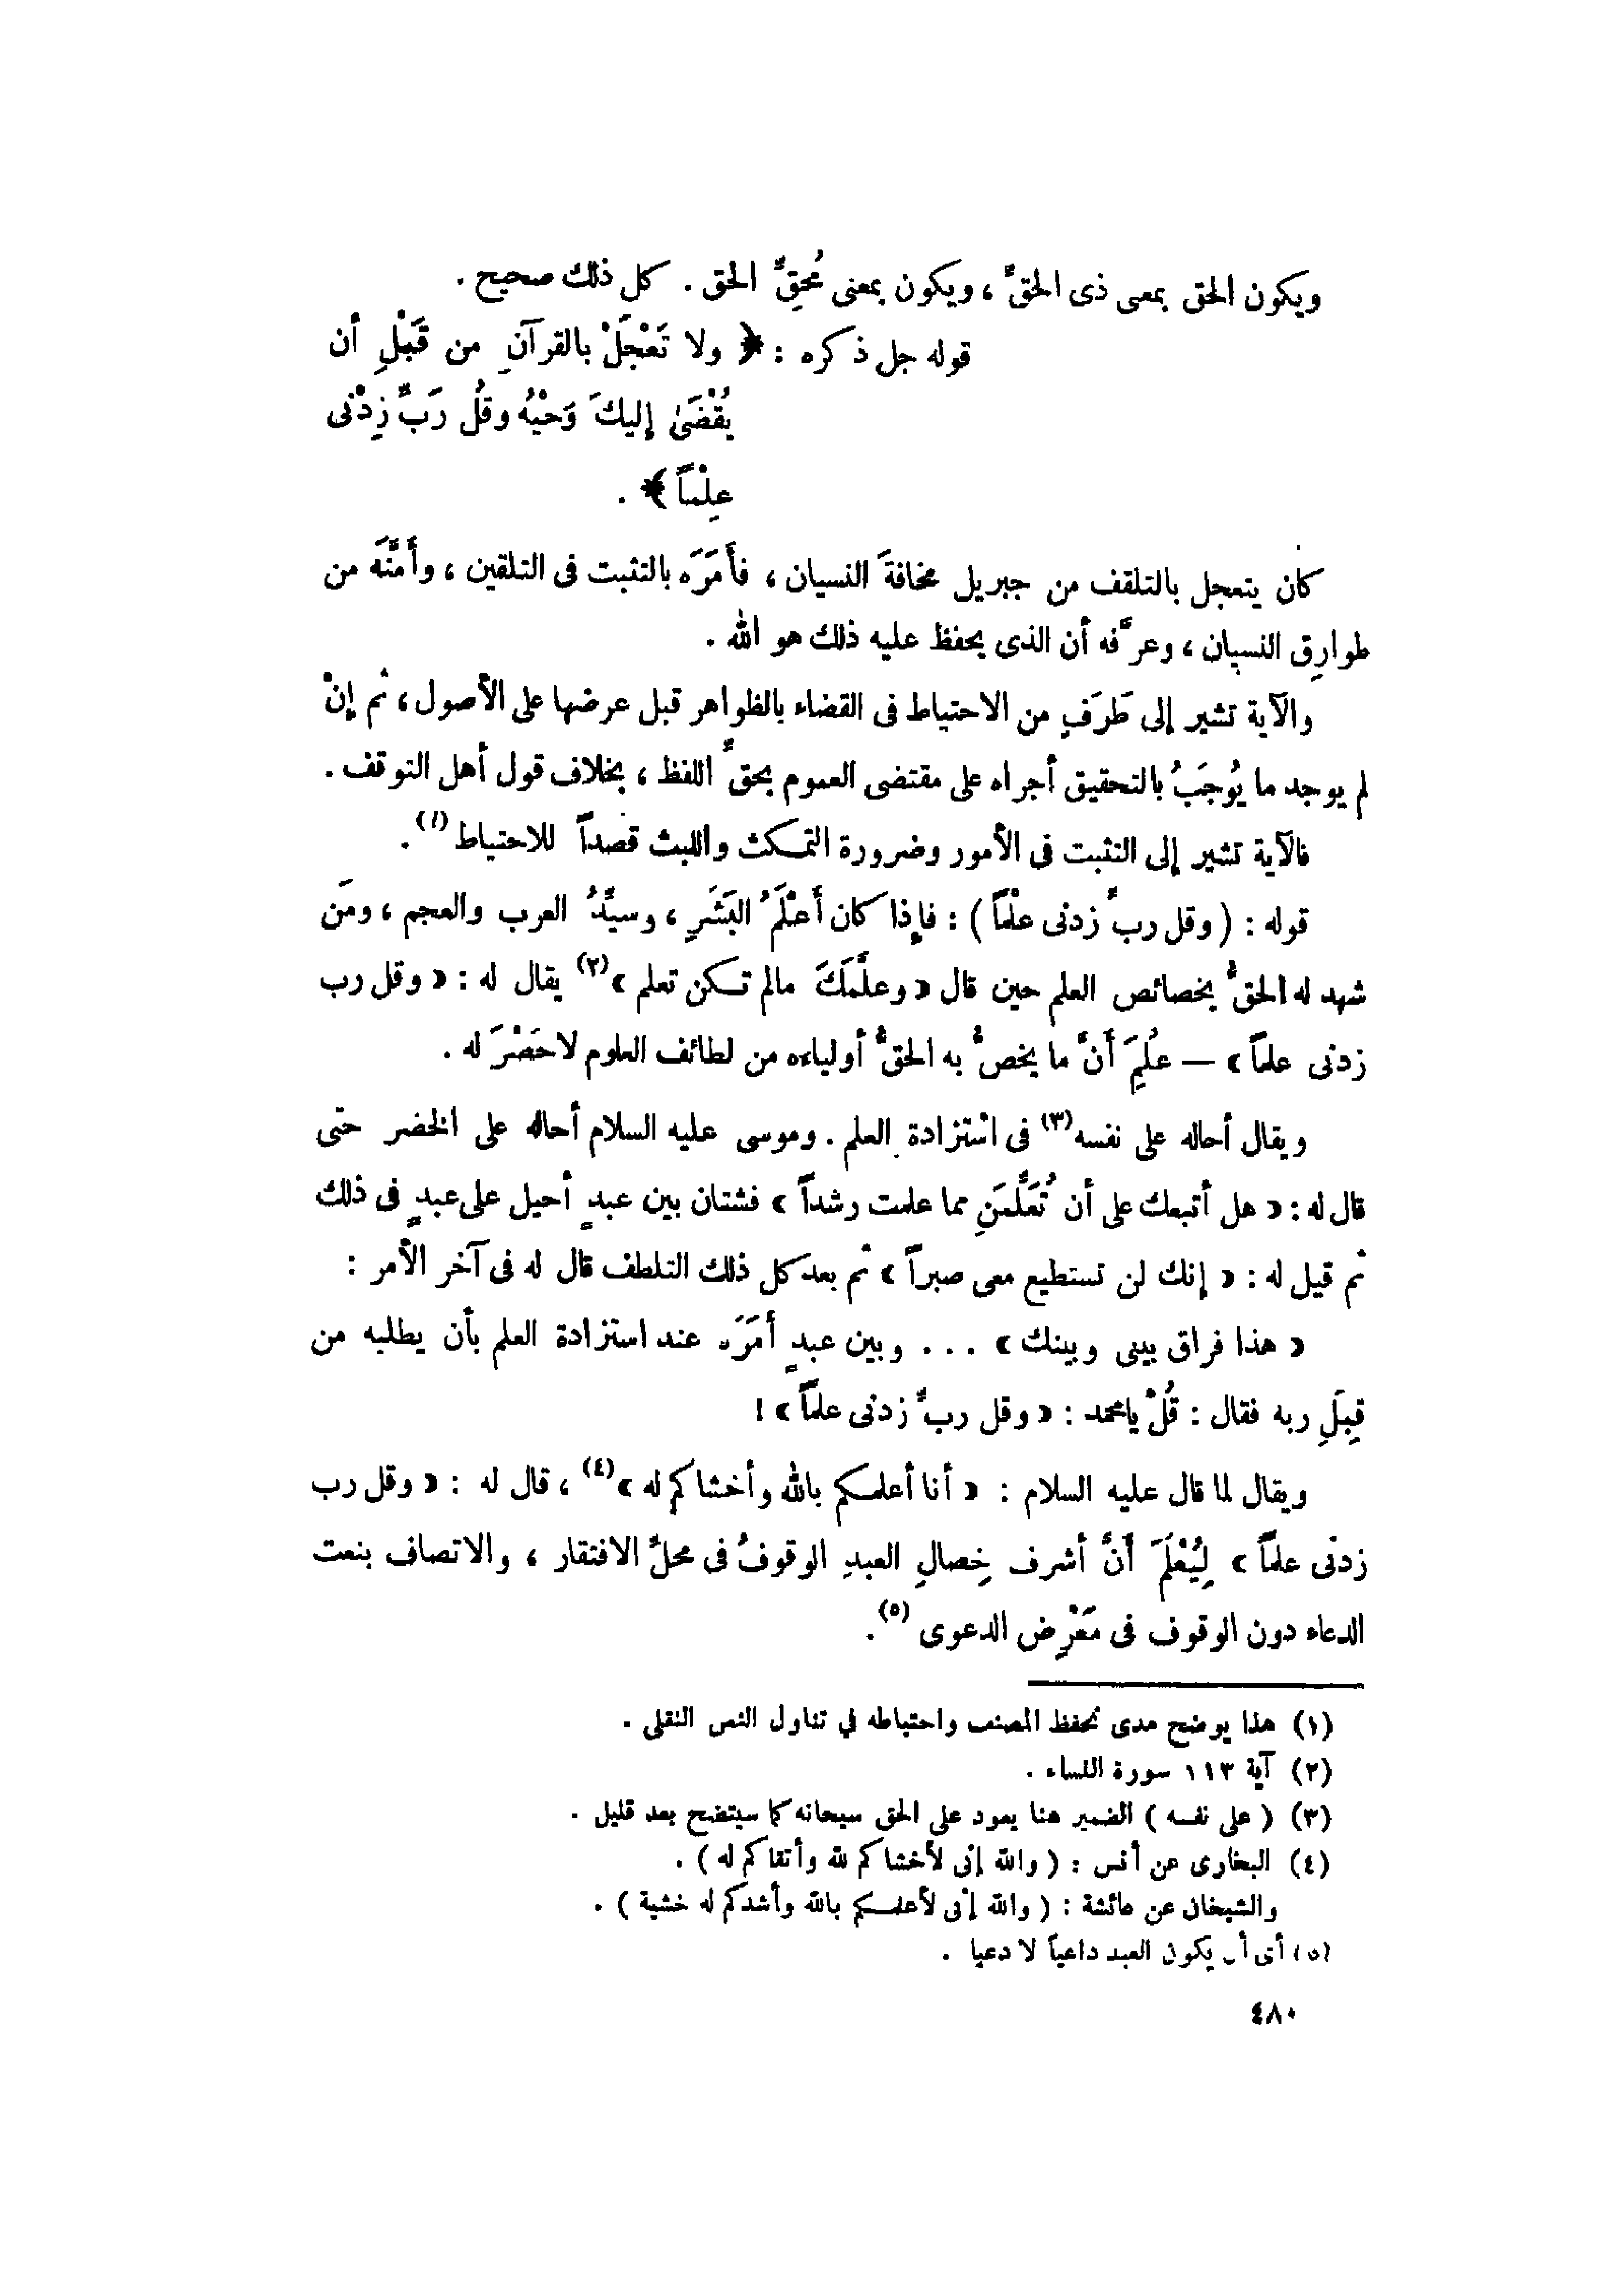 ويكون الحق بمعى ذى الحقِّ ، ويكون بمعنى مُحِقِّ الحق . كل ذلك صحيح .
قوله جل ذكره : ﴿ ولا تَعْجَلْ بالقرآنِ من قَبْلِ أن
يُقْضَىٰ إليكَ وَحْيُه وقُل رَبِّ زِدْنى
عِلْماً ﴾ .
كان يتعجل بالتلقف من جبريل مخافةَ النسيان ، فأَمَرَه بالتثبت فى التلقين ، وأَمَّنَه من
طوارِق النسيان ، وعرَّفه أن الذى يحفظ عليه ذلك هو الله .
والآية تشير إلى طَرَفٍ من الاحتياط فى القضاء بالظواهر قبل عرضها على الأصول ، ثم إنْ
لم يوجد ما يُوجَبُ بالتحقيق أجراه على مقتضى العموم بحقِّ اللفظ ، بخلاف قول أهل التوقف .
فالآية تشير إلى التثبت فى الأمور وضرورة التمكث واللبث قصداً للاحتياط (١) .
قوله : ( وقل ربِّ زدنى علْماً ) : فإذا كان أَعْلَمُ البَشَرِ ، وسيِّدُ العرب والعجم ، ومَن
شهد له الحقُّ بخصائص العلم حين قال « وعلَّمَكَ مالم تكن تعلم » (٢) يقال له : « وقل رب
زدنى علماً » — عُلِمَ أَنَّ ما يخصُّ به الحقُّ أولياءه من لطائف العلوم لا حَصْرَ له .
ويقال أحاله على نفسه (٣) فى استزادة العلم . وموسى عليه السلام أحاله على الخضر حتى
قال له : « هل أتبعك على أن تُعَلِّمَنِ مما علمت رشداً » فشتان بين عبدٍ أحيل على عبدٍ فى ذلك
ثم قيل له : « إنك لن تستطيع معى صبراً » ثم بعد كل ذلك التلطف قال له فى آخر الأمر :
« هذا فراق بينى وبينك » . . . وبين عبدٍ أَمَرَه عند استزادة العلم بأن يطلبه من
قِبَلِ ربه فقال : قُلْ يا محمد : « وقل ربِّ زدنى علماً » !
ويقال لما قال عليه السلام : « أنا أعلمكم بالله وأخشاكم له » (٤) ، قال له : « وقل رب
زدنى علماً » لِيُعْلَمَ أَنَّ أشرف خِصالِ العبدِ الوقوفُ فى محلِّ الافتقار ، والاتصاف بنعت
الدعاء دون الوقوف فى مَعْرِض الدعوى (٥) .
(١) هذا يوضح مدى تحفظ المصنف واحتياطه في تناول النص النقلى .
(٢) آية ١١٣ سورة النساء .
(٣) ( على نفسه ) الضمير هنا يعود على الحق سبحانه كما سيتضح بعد قليل .
(٤) البخارى عن أنس : ( والله إنى لأخشاكم لله وأتقاكم له ) .
والشيخان عن عائشة : ( والله إنى لأعلمكم بالله وأشدكم له خشية ) .
(٥) أى أن يكون العبد داعياً لا دعيا .
٤٨٠